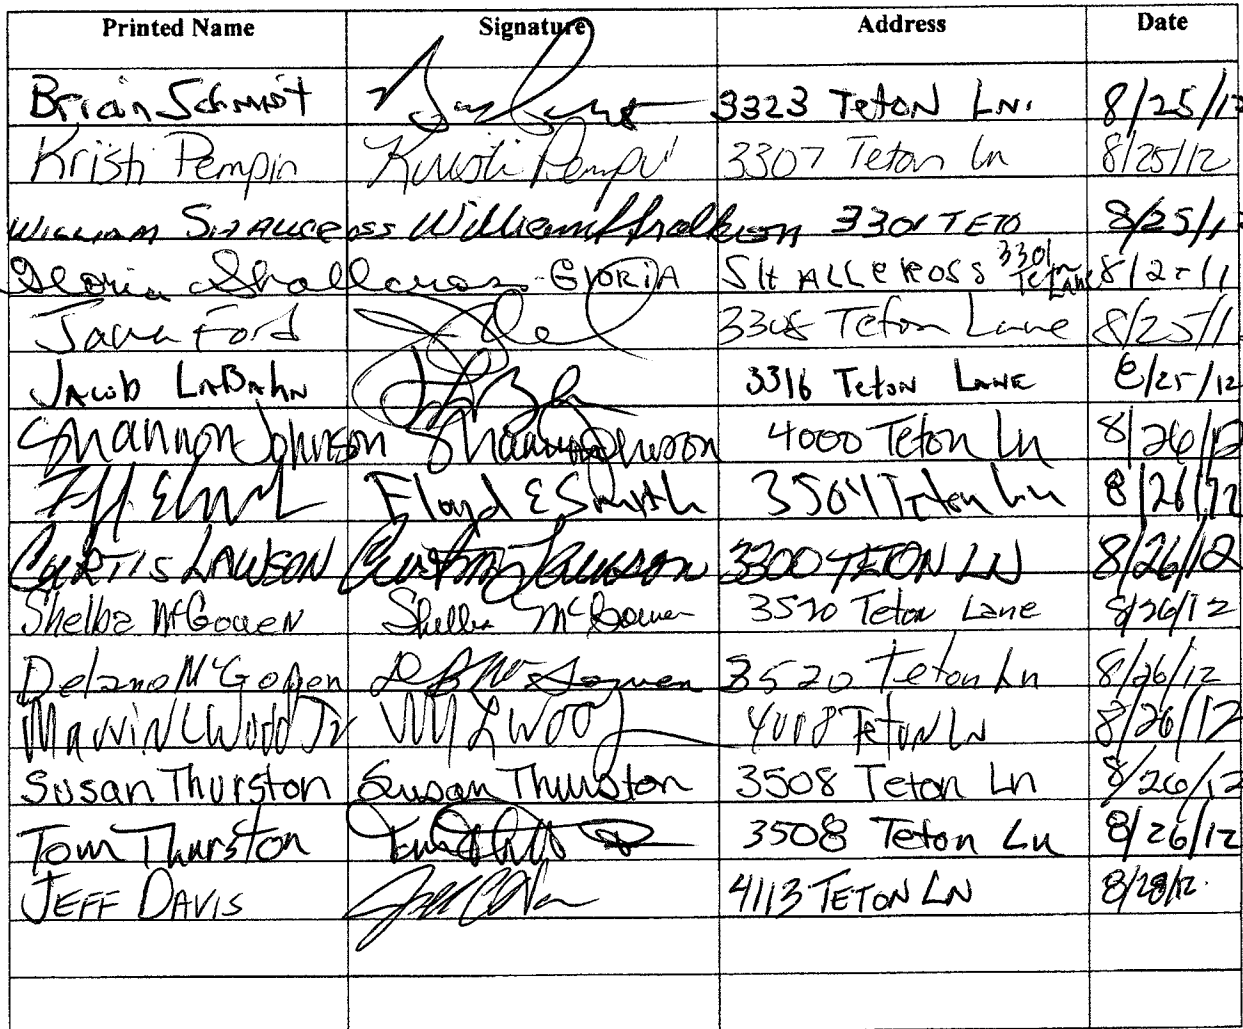 Printed Name Signature Address Date
Brian Schmidt 3323 Teton LN. 8/25/12
Kristi Pempin Kristi Pempin 3307 Teton Ln 8/25/12
William Shallcross William Shallcross 3301 TETO 8/25/1
Gloria Shallcross - GLORIA SHALLCROSS 3301 Teton Lane 8/25/1
Ford 3308 Teton Lane 8/25/1
JACOB LABAHN 3316 Teton LANE 8/25/12
Shannon Johnson Shannon Johnson 4000 Teton Ln 8/26/12
Floyd E Smyth 3504 Teton Ln 8/26/12
CURTIS LAWSON Curtis Lawson 3300 TETON LN 8/26/12
Shelba McGowen Shelba McGowen 3520 Teton Lane 8/26/12
Delano McGowen 3520 Teton Ln 8/26/12
Marvin L Wood Jr M L Wood 4008 Teton LN 8/26/12
Susan Thurston Susan Thurston 3508 Teton Ln 8/26/12
Tom Thurston 3508 Teton Ln 8/26/12
JEFF DAVIS 4113 TETON LN 8/28/12.